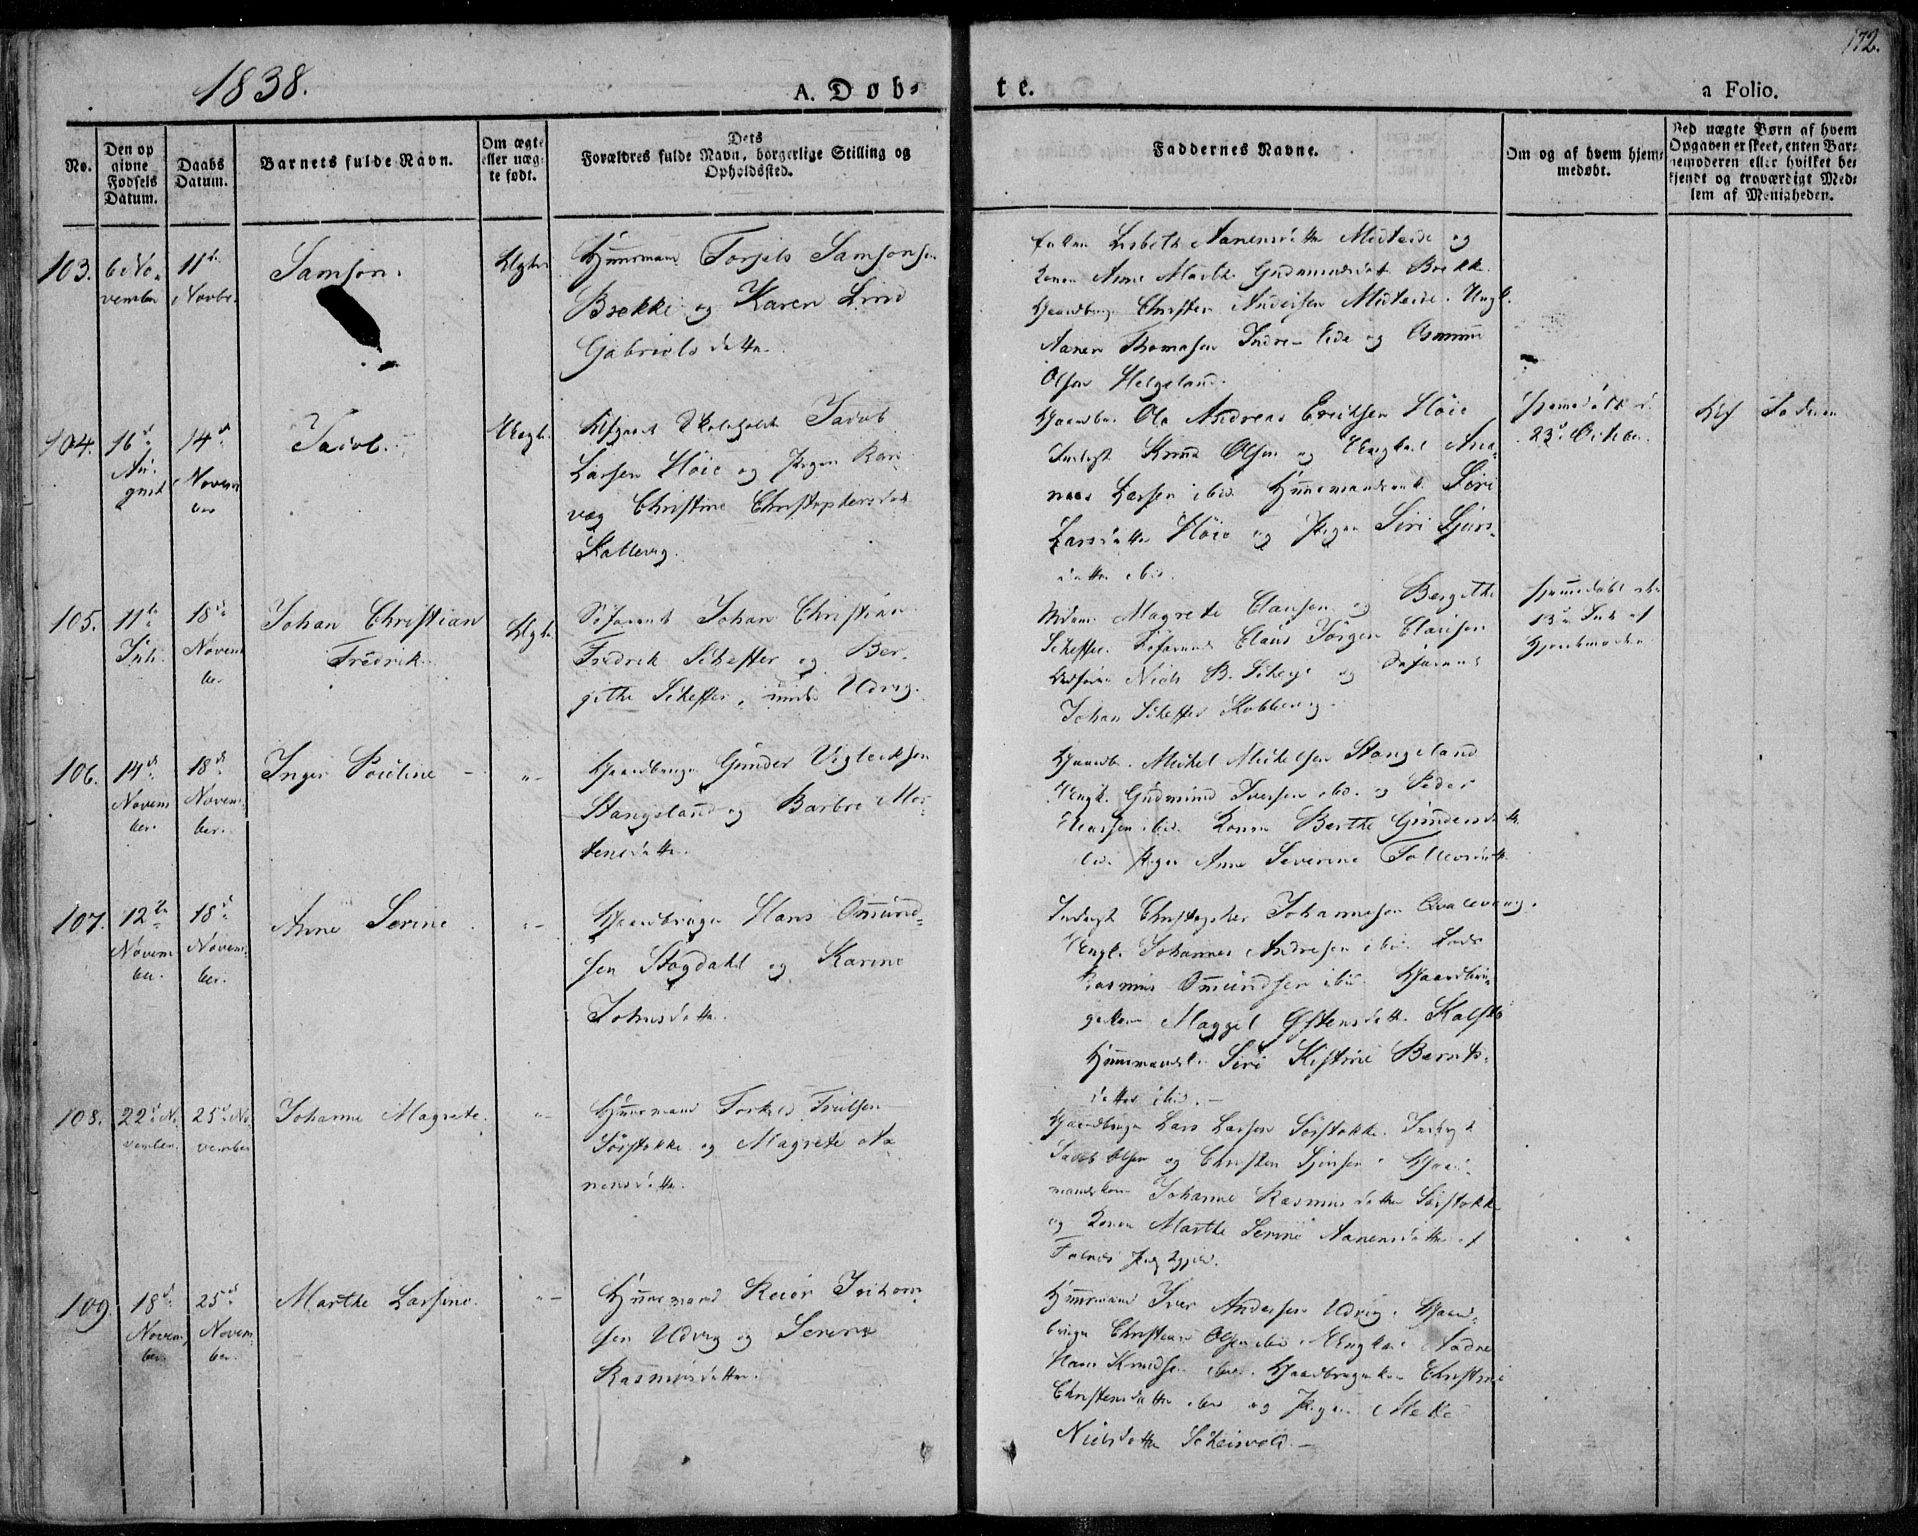 172.
1838.
A. Døb-
te.
a Folio.
No.
Den op
givne
Fødsels
Datum.
Daabs
Datum.
Barnets fulde Navn.
Om ægte
eller uæg-
te født.
Dets
Forældres fulde Navn, borgerlige Stilling og
Opholdssted.
Faddernes Navne.
Om og af hvem hjem-
medøbt.
Ved uægte Børn af hvem
Opgaven er skeet, enten Bar-
nemoderen eller hvilket be-
kjendt og troværdigt Med-
lem af Menigheden.
103.
6 No-
vember
11te
Novbr.
Samson.
Ægte
Huusmand Torjels Samsonsen
Brekke og Karen Lind
Gabrielsdatter
Lisbeth Aanensdatter Midteide og
Konen Anne Marthe Gudmundsdat. Brekke
Gaardbruger Christen Andersen Midteide. Ungk.
Aanen Thomasen Indre-Eide og Osmund
Olsen Helgeland.
104.
16d
Au-
gust
14d
Novem
ber
Jacob.
Uægte
Skoleholder Jacob
Larsen Høie og Pigen Ran-
væg Christine Christophersdat
Kallevig.
Gaardbr. Ole Andreas Eriksen Høie
Inderst Knud Olsen og Ungkarl And-
reas Larsen ibid. Huusmandsenk. Siri
Larsdatter Høie og Pigen Siri Sjurs-
datter ibid.
Hjemmedøbt d.
23d October.
Faderen
105.
11te
Juli.
18d
Novem
ber
Johan Christian
Fredrik.
Ægte
Søfarende Johan Christian
Fredrik Scheffer og Ber-
githe Scheffer, Udvig.
Madam Magrete Clausen og Bergithe
Scheffer. Søfarende Claus Jørgen Clausen
Niels B. og Søfarende
Johan Scheffer Kobbevig.
Hjemmedøbt
13d Juli af
Gjordemoder
106.
14d
Novem
ber.
18d
Novem-
ber.
Inger Pouline
"-
Gaardbruger Gunder Vigleiksen
Stangeland og Barbro Mor-
tensdatter.
Gaardb. Mikel Mikelsen Stangeland
Ungk. Gudmund Iversen ibid. og Peder
ibid. Konen Berthe Gundersdatter
ibid. Pigen Anne Severine Tollevsdatter
107.
12te
Novem
ber.
18d
Novem-
ber.
Anne Serine
"-
Gaardbruger Hans Omund-
sen Stogdahl og Karine
Johnsdatter.
Inderst Christopher Johannesen Qvalevaag.
Ungk. Johannes Andresen ibid.
Rasmus Omundsen ibid. Gaardbru-
gerkone Maggel Østensdatt. Kalstø
Huusmandsk. Siri Kistine Bernts-
datter ibid.-
108.
22d No-
vember.
25d No-
vember
Johanne Magrete.
"-
Huusmand Torkel Truelsen
Sørstokke og Magrete Aa-
nensdatter.
Gaardbruger Lars Larsen Sørstokke. Inderst
Jacob Olsen og Christen
mandskone Johanne Rasmusdatter Sørstokke
og Konen Marthe Serine Aanensdatter af
109.
18d
Novem,
ber.
25d
Novem-
ber.
Marthe Larsine.
"-
Huusmand Reier Jochum-
sen Udvig og Serine
Rasmusdatter.
Huusmand Iver Andersen Udvig. Gaard-
bruger Christian Olsen ibid. Ungkarl
Hans Knudsen ibid. Gaardbrugerkone Christine
Christensdatter ibid og Pigen
Nielsdatter